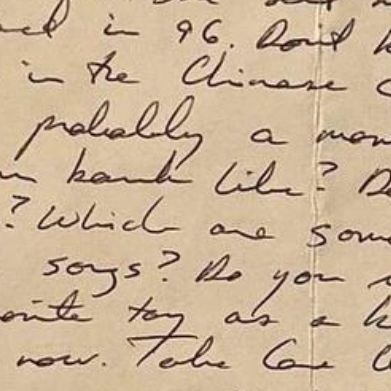 in 96. Dont
in the Chinese
probably a
bank like? Do
? Which are some
songs? Do you
toy as a
now. Take Care